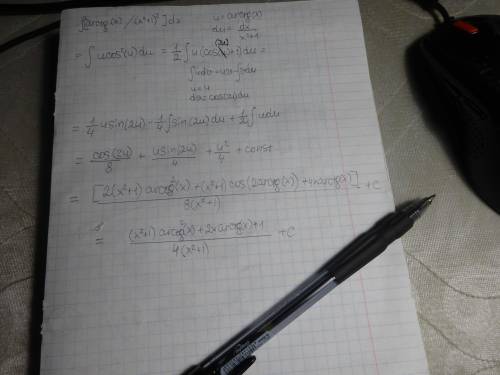 ∫[arctg(x) / (x²+1)²] dx    u = arctg(x)
du = dx/(x²+1)
= ∫ u cos²(u) du = 1/2 ∫ u (cos(2u)+1) du =
∫udv = uv - ∫vdu
u = u
dv = cos(2u) du
= 1/4 u sin(2u) - 1/4 ∫ sin(2u) du + 1/2 ∫ u du
= cos(2u)/8 + u sin(2u)/4 + u²/4 + const
= [2(x²+1) arctg²(x) + (x²+1) cos(2arctg(x)) + 4x arctg(x)] / 8(x²+1) + C
= (x²+1) arctg²(x) + 2x arctg(x) + 1 / 4(x²+1) + C